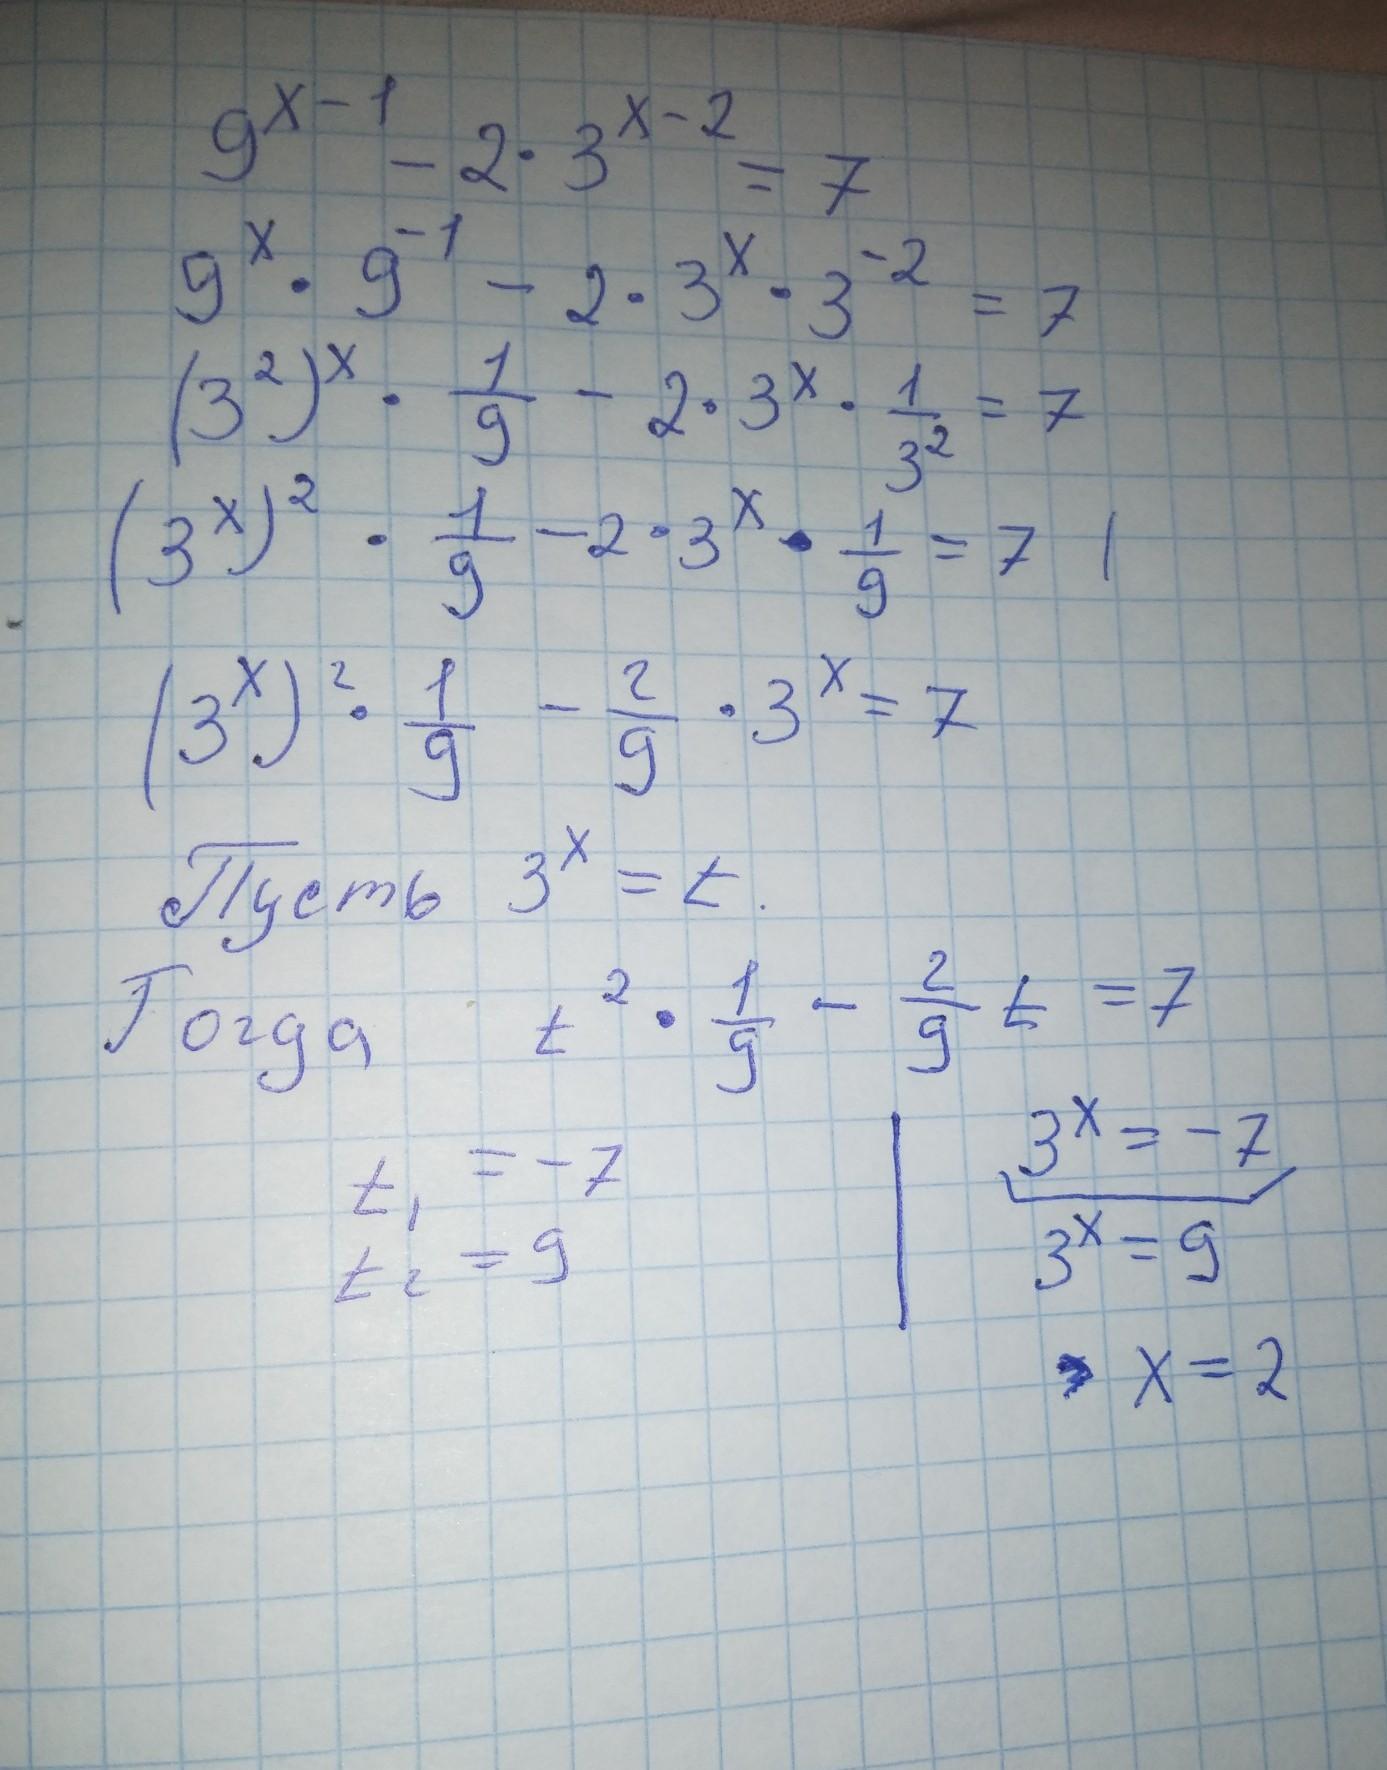 9^{x-1} - 2 · 3^{x-2} = 7
9^x · 9^{-1} - 2 · 3^x · 3^{-2} = 7
(3^2)^x · 1/9 - 2 · 3^x · 1/3^2 = 7
(3^x)^2 · 1/9 - 2 · 3^x · 1/9 = 7 |
(3^x)^2 · 1/9 - 2/9 · 3^x = 7
Пусть 3^x = t.
Тогда t^2 · 1/9 - 2/9 t = 7
t_1 = -7
t_2 = 9
3^x = -7
3^x = 9
x = 2